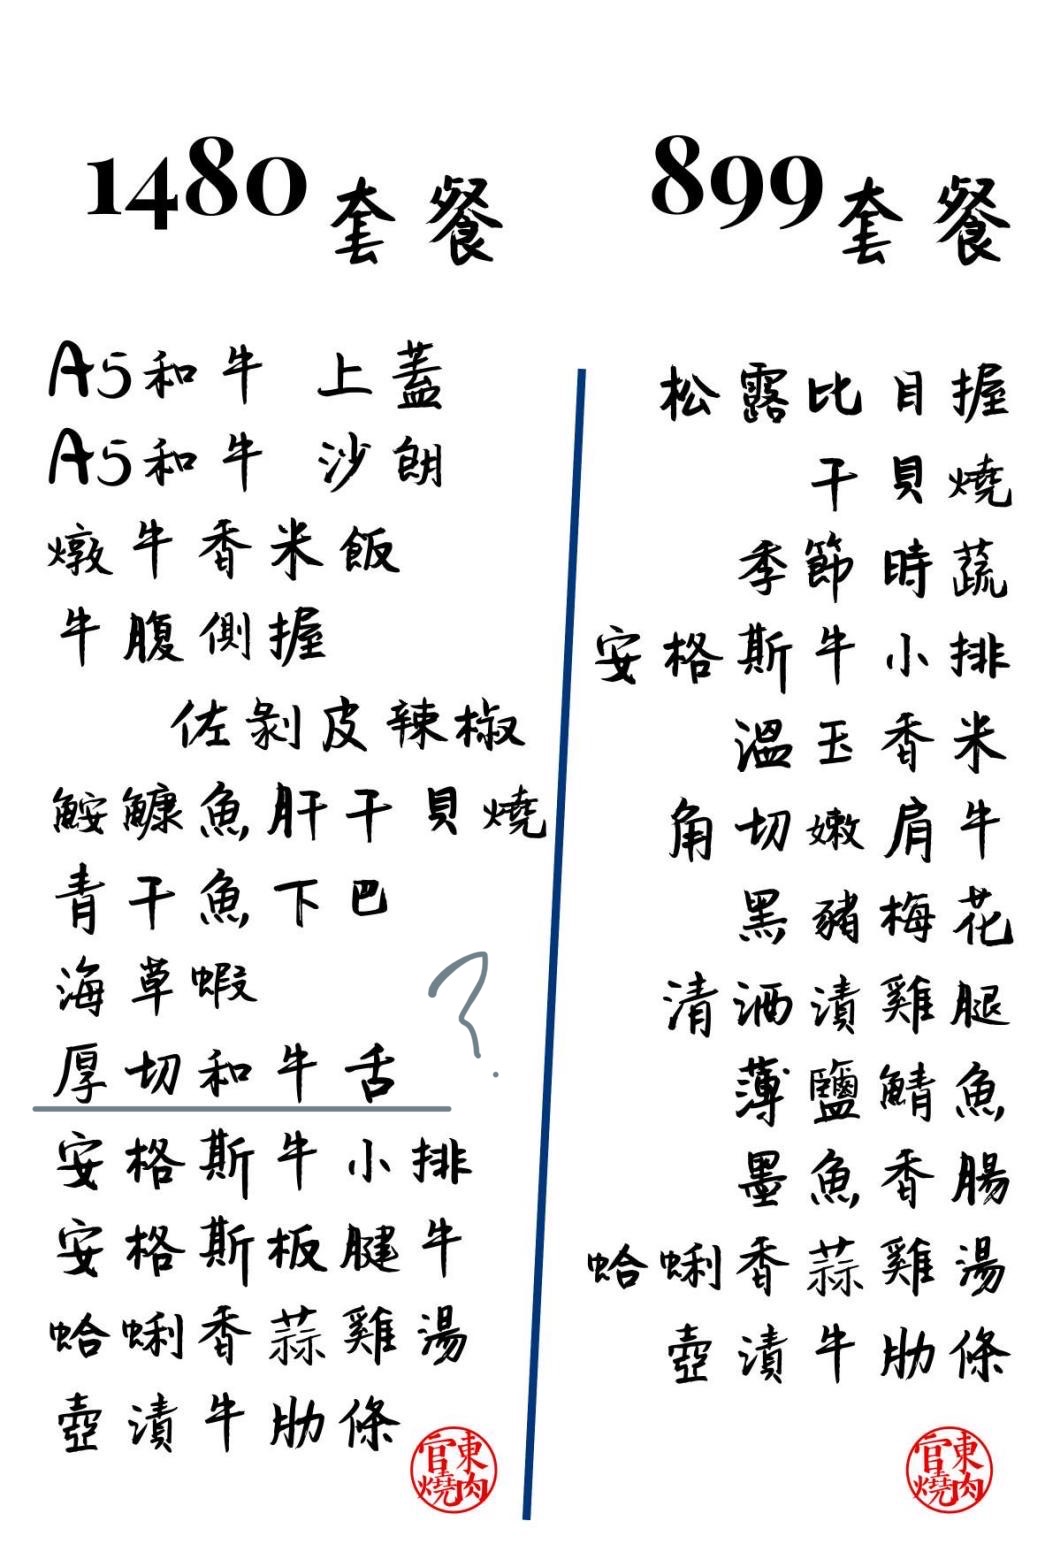 1480套餐
A5和牛 上蓋
A5和牛 沙朗
燉牛香米飯
牛腹側握
佐剝皮辣椒
鮟鱇魚肝干貝燒
青干魚下巴
海草蝦
?
厚切和牛舌
安格斯牛小排
安格斯板腱牛
蛤蜊香蒜雞湯
壺漬牛肋條
官東燒肉
899套餐
松露比目握
干貝燒
季節時蔬
安格斯牛小排
溫玉香米
角切嫩肩牛
黑豬梅花
清酒漬雞腿
薄鹽鯖魚
墨魚香腸
蛤蜊香蒜雞湯
壺漬牛肋條
官東燒肉